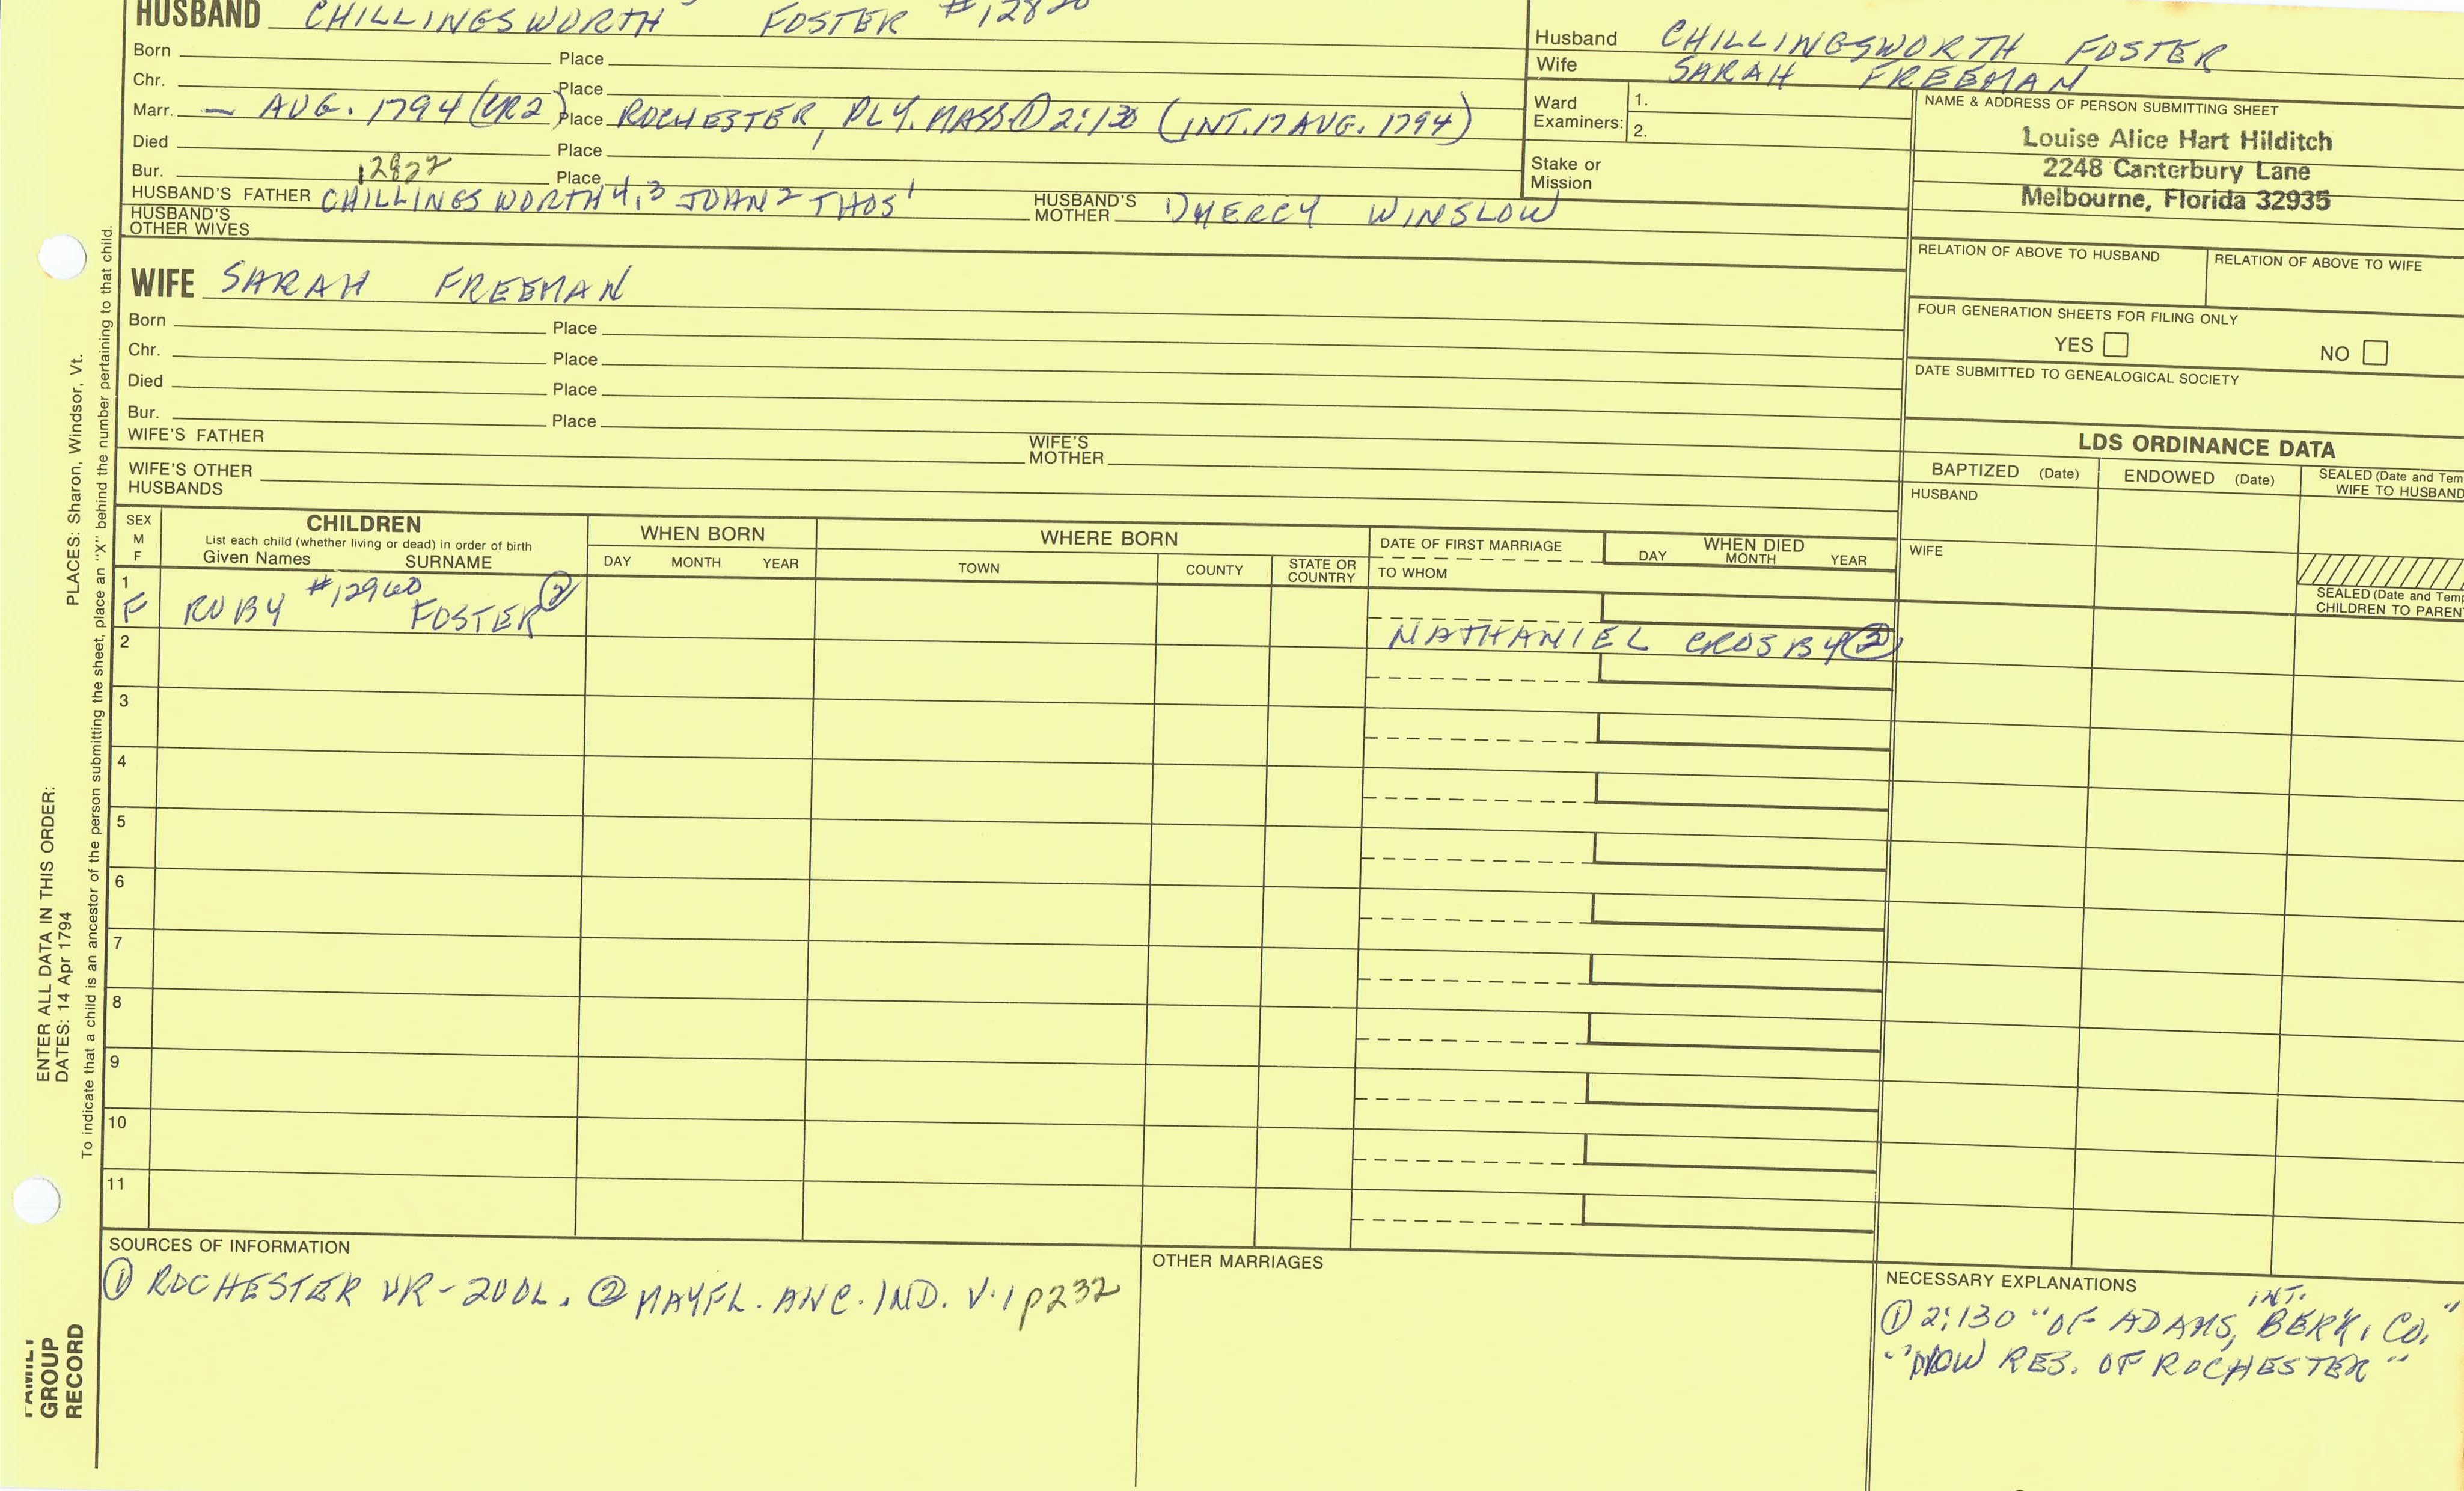 HUSBAND CHILLINGSWORTH FOSTER #12820
Born Place
Chr. Place
Marr. — AUG. 1794 (VR2) Place ROCHESTER, PLY. MASS ① 2:130 (INT. 17 AUG. 1794)
Died Place
Bur. 12822 Place
HUSBAND'S FATHER CHILLINGSWORTH 4,3 JOHN 2 THOS 1 HUSBAND'S MOTHER 1) MERCY WINSLOW
HUSBAND'S OTHER WIVES
Husband CHILLINGSWORTH FOSTER
Wife SARAH FREEMAN
Ward Examiners: 1.
2.
Stake or Mission
NAME & ADDRESS OF PERSON SUBMITTING SHEET
Louise Alice Hart Hilditch
2248 Canterbury Lane
Melbourne, Florida 32935
RELATION OF ABOVE TO HUSBAND RELATION OF ABOVE TO WIFE
FOUR GENERATION SHEETS FOR FILING ONLY
YES NO
DATE SUBMITTED TO GENEALOGICAL SOCIETY
WIFE SARAH FREEMAN
Born Place
Chr. Place
Died Place
Bur. Place
WIFE'S FATHER WIFE'S MOTHER
WIFE'S OTHER HUSBANDS
LDS ORDINANCE DATA
BAPTIZED (Date) ENDOWED (Date) SEALED (Date and Tem
WIFE TO HUSBAND
HUSBAND
WIFE
SEALED (Date and Tem
CHILDREN TO PAREN
SEX M F
CHILDREN
List each child (whether living or dead) in order of birth
Given Names SURNAME
WHEN BORN
DAY MONTH YEAR
WHERE BORN
TOWN COUNTY STATE OR COUNTRY
DATE OF FIRST MARRIAGE
TO WHOM
WHEN DIED
DAY MONTH YEAR
1
F RUBY #12960 FOSTER ②
NATHANIEL CROSBY ②
2
3
4
5
6
7
8
9
10
11
SOURCES OF INFORMATION
① ROCHESTER VR-2VOL. ② MAYFL. ANC. IND. V.1 p232
OTHER MARRIAGES
NECESSARY EXPLANATIONS
① 2:130 "OF ADAMS, INT. BERK. CO."
"NOW RES. OF ROCHESTER"
PLACES: Sharon, Windsor, Vt.
To indicate that a child is an ancestor of the person submitting the sheet, place an "X" behind the number pertaining to that child.
ENTER ALL DATA IN THIS ORDER:
DATES: 14 Apr 1794
FAMILY
GROUP
RECORD